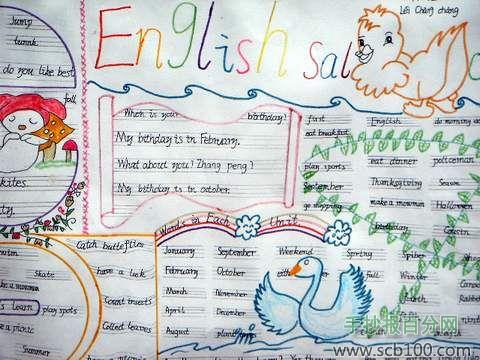 Lei Chang chang
English Sal
Jump
do you like best
fall
kites.
ty.
When is your birthday?
My bithday is in February.
What about you? Zhang peng?
My bithday is in october.
first English do morning
eat breakfast
eat dinner policeman
play sports
September Thanksgiving Season
go shopping make a snowman Halloween
Catch butterflies
Skate have a look
Count insects
Learn play sports
a picnic Collect leaves
Summer
Words in Each Unit
January September Weekend Spring Spider
February October fall Winter
March November
April December
August
手抄报百分网
www.scb100.com